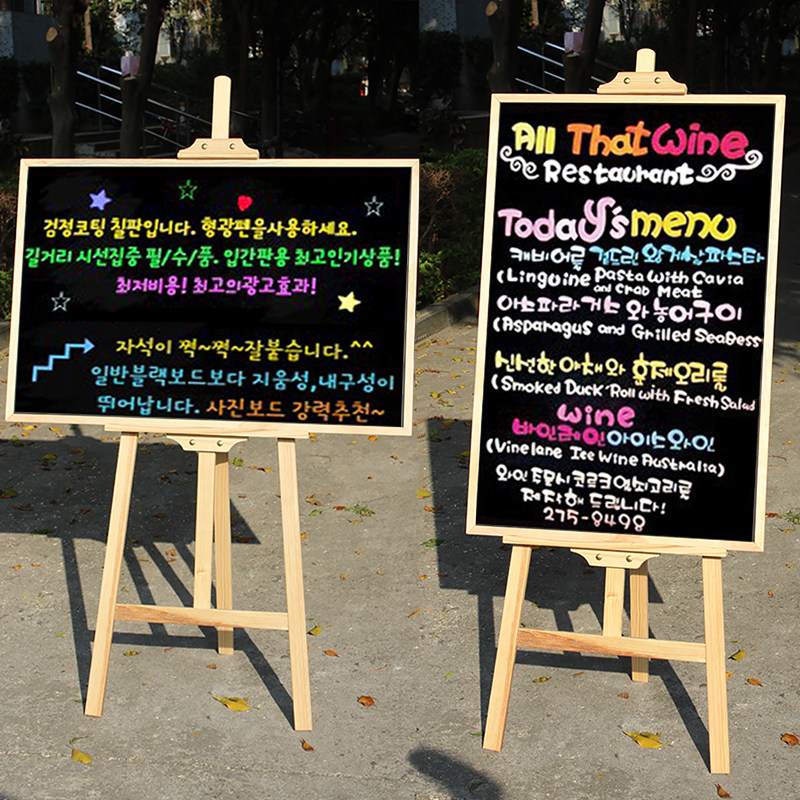 검정코팅 칠판입니다. 형광펜을사용하세요.
길거리 시선집중 필/수/품. 입간판용 최고인기상품!
최저비용! 최고의광고효과!
자석이 쩍~쩍~잘붙습니다.^^
일반블랙보드보다 지움성,내구성이
뛰어납니다. 사진보드 강력추천~
All That Wine
Restaurant
Today's menu
캐비어를 곁드린 와 게살파스타
(Linguine Pasta With Cavia
and Crab Meat
아스파라거스 와 농어구이
(Asparagus and Grilled SeaBess
신선한 야채와 훈제오리롤
(Smoked Duck Roll with Fresh Salad
wine
바인레인아이스와인
(Vinelane Ice Wine Australia)
와인 주문시 코르크 열쇠고리를
제작해 드립니다!
275-8498